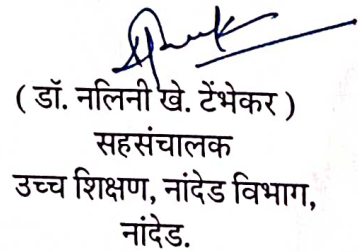 ( डॉ. नलिनी खे. टेंभेकर )
सहसंचालक
उच्च शिक्षण, नांदेड विभाग,
नांदेड.